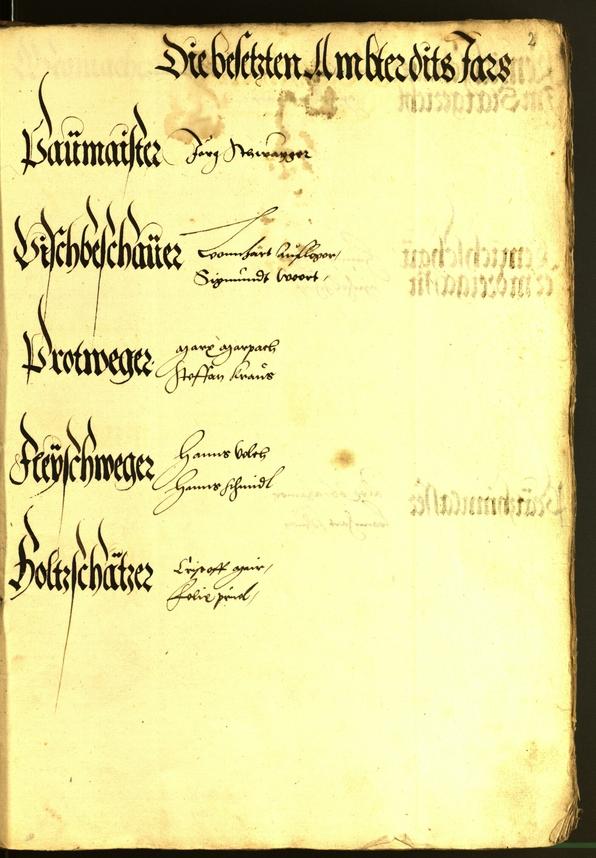 2
Die besetzten Ambter dits Jars
Paümaister Jörg Schwaiger
Vischbeschaüer Lienhart
Sigmundt
Protweger Marx Marpach
Steffan Kraus
Fleÿschweger Hanns Volch
Hanns Schmidl
Holtzschätzer Cristoff Mair